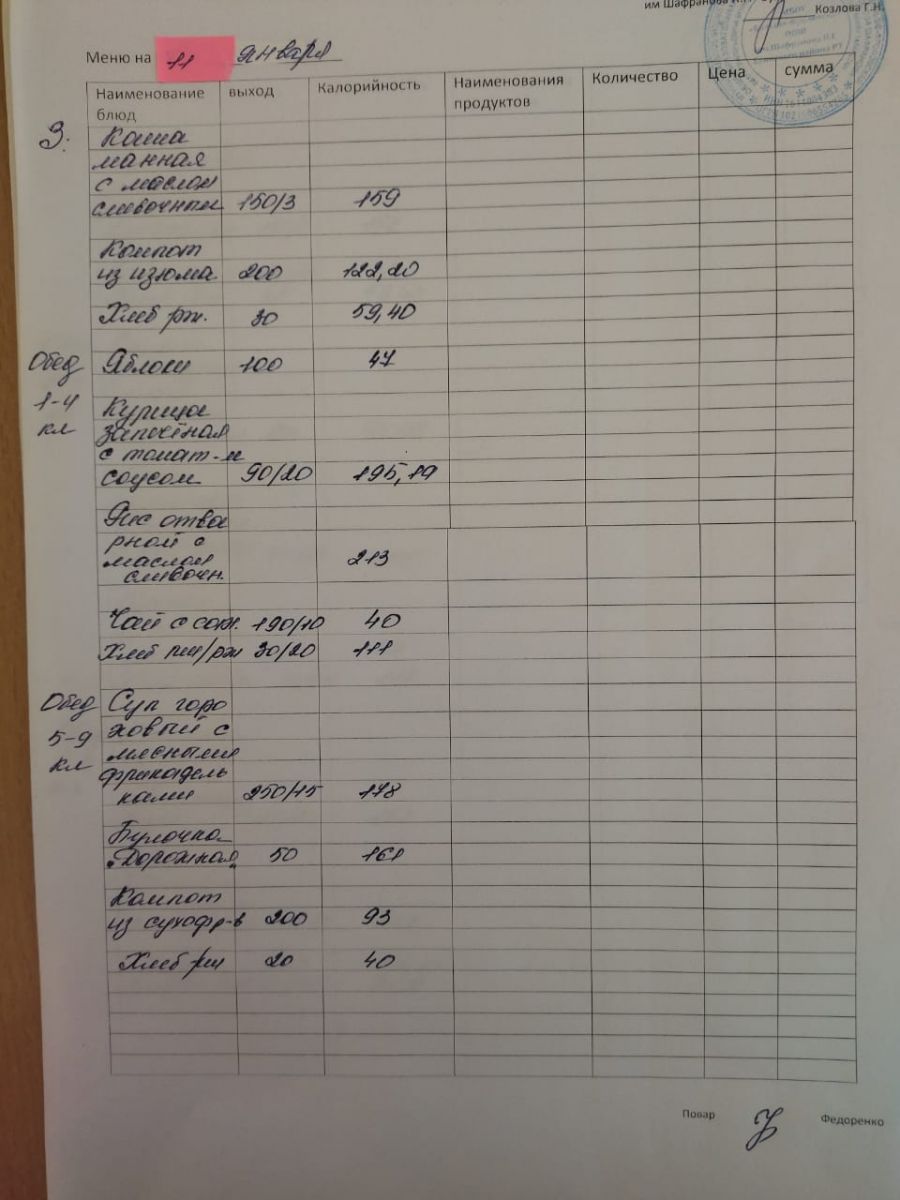 им Шафранова
Козлова Г.Н.
Меню на 11 января
Наименование блюд выход Калорийность Наименования продуктов Количество Цена сумма
З.
Каша
манная
с маслом
сливочным 150/3 159
Компот
из изюма 200 122,20
Хлеб рж. 30 59,40
Обед Яблоки 100 47
1-4 Курица
кл запечёная
с томат-м
соусом 90/20 195,19
Рис отва
рной с
маслом 213
сливочн.
Чай с сах. 190/10 40
Хлеб пш/рж 30/20 111
Обед Суп горо
5-9 ховый с
кл мясными
фрикадель
ками 250/15 178
Булочка
"Дорожная" 50 161
Компот
из сухофр-в 200 93
Хлеб рж 20 40
Повар Федоренко